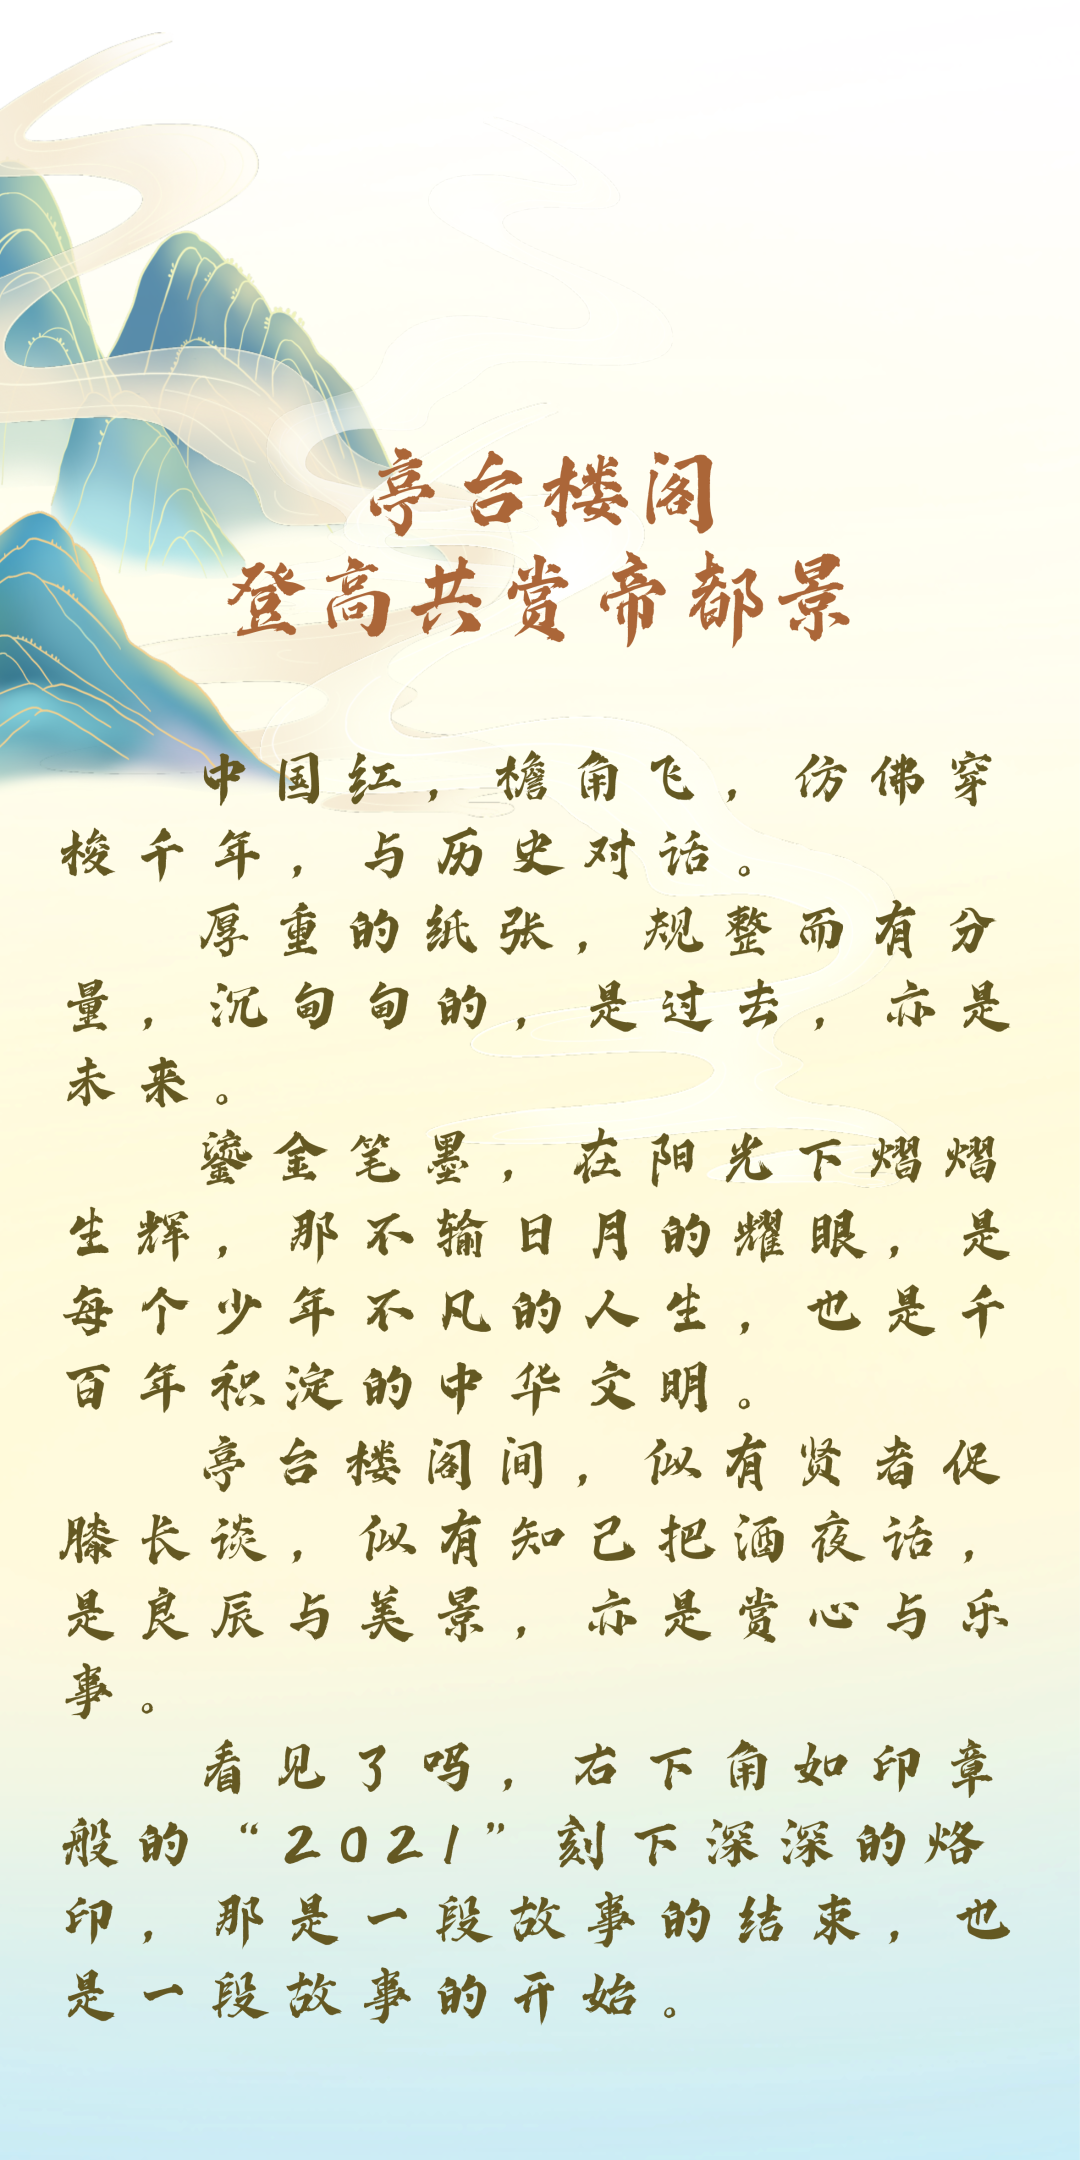 亭台楼阁
登高共赏帝都景
中国红，檐角飞，仿佛穿
梭千年，与历史对话。
厚重的纸张，规整而有分
量，沉甸甸的，是过去，亦是
未来。
鎏金笔墨，在阳光下熠熠
生辉，那不输日月的耀眼，是
每个少年不凡的人生，也是千
百年积淀的中华文明。
亭台楼阁间，似有贤者促
膝长谈，似有知己把酒夜话，
是良辰与美景，亦是赏心与乐
事。
看见了吗，右下角如印章
般的“2021”刻下深深的烙
印，那是一段故事的结束，也
是一段故事的开始。